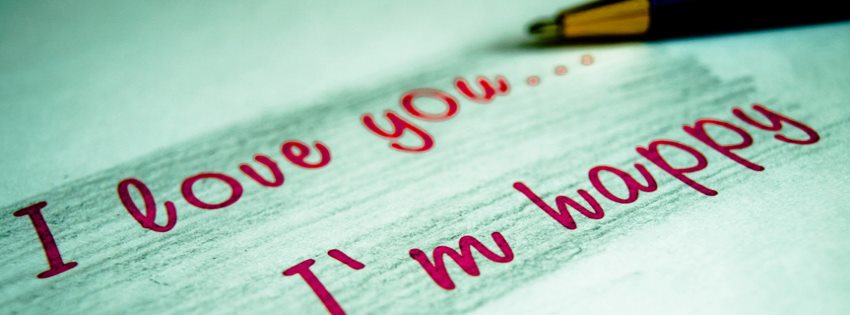 I love you...
I'm happy